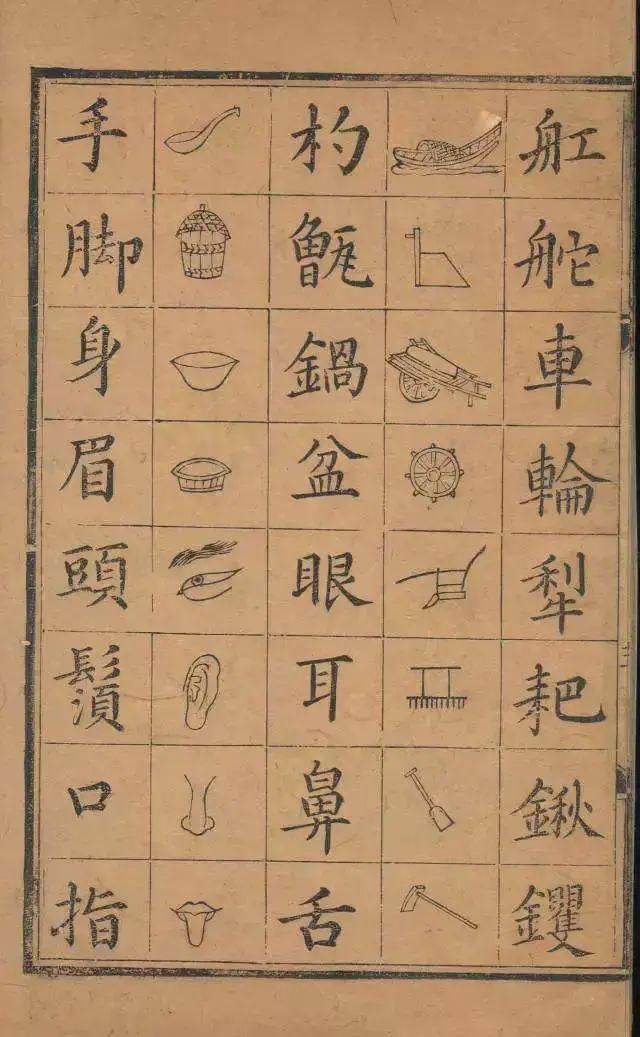 舡舵車輪犁耙鍬钁
杓甑鍋盆眼耳鼻舌
手脚身眉頭鬚口指